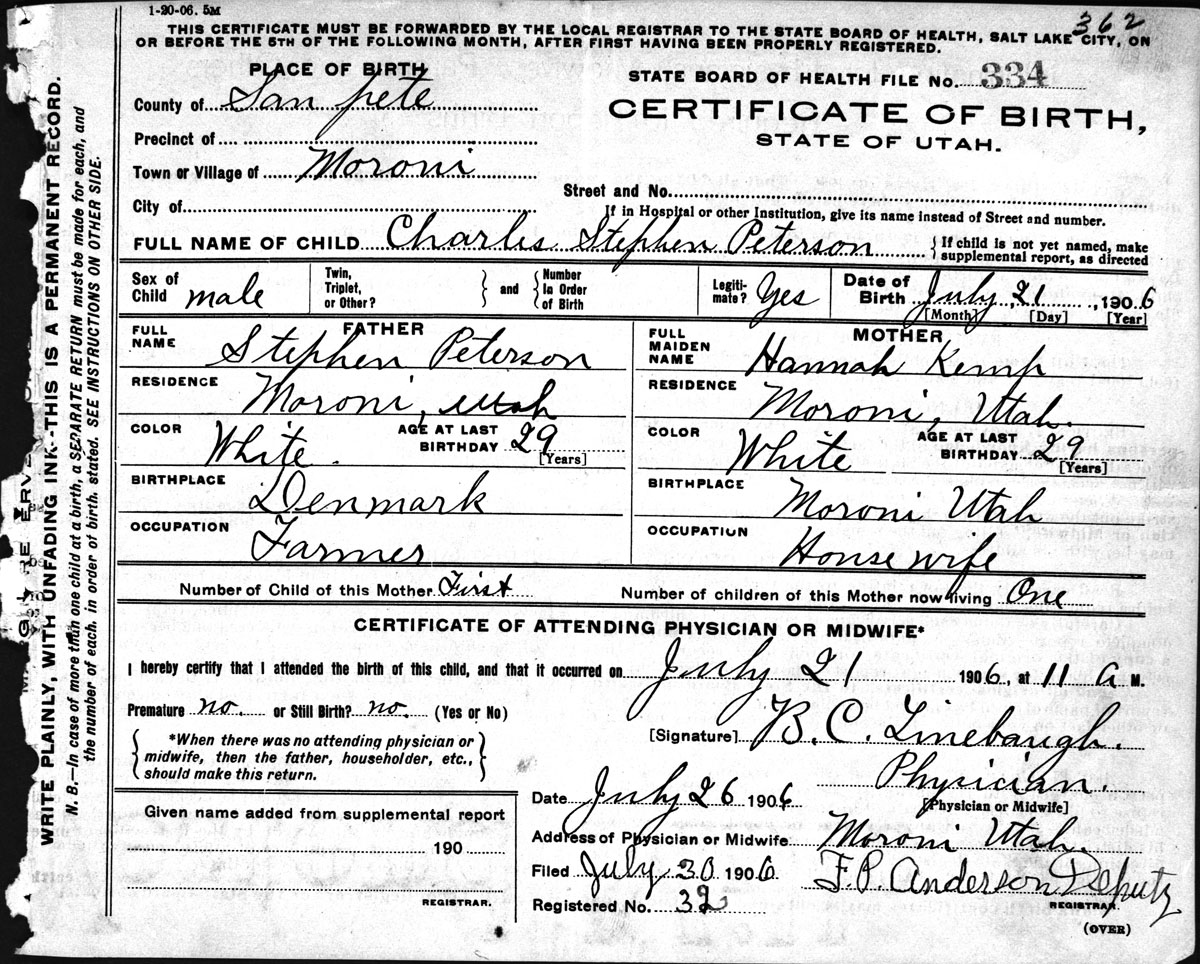 1-20-06. 5M
362
THIS CERTIFICATE MUST BE FORWARDED BY THE LOCAL REGISTRAR TO THE STATE BOARD OF HEALTH, SALT LAKE CITY, ON
OR BEFORE THE 5TH OF THE FOLLOWING MONTH, AFTER FIRST HAVING BEEN PROPERLY REGISTERED.
PLACE OF BIRTH
STATE BOARD OF HEALTH FILE No. 334
County of San pete
CERTIFICATE OF BIRTH,
STATE OF UTAH.
Precinct of
Town or Village of Moroni
Street and No.
City of
If in Hospital or other Institution, give its name instead of Street and number.
FULL NAME OF CHILD Charles Stephen Peterson { If child is not yet named, make supplemental report, as directed
Sex of Child male
Twin, Triplet, or Other? } and { Number In Order of Birth
Legiti-mate? Yes
Date of Birth July 21, 1906
[Month] [Day] [Year]
FATHER
FULL NAME Stephen Peterson
RESIDENCE Moroni, Utah
COLOR White. AGE AT LAST BIRTHDAY 29 [Years]
BIRTHPLACE Denmark
OCCUPATION Farmer
MOTHER
FULL MAIDEN NAME Hannah Kemp
RESIDENCE Moroni, Utah.
COLOR White AGE AT LAST BIRTHDAY 29 [Years]
BIRTHPLACE Moroni Utah
OCCUPATION House wife
Number of Child of this Mother First Number of children of this Mother now living One
CERTIFICATE OF ATTENDING PHYSICIAN OR MIDWIFE*
I hereby certify that I attended the birth of this child, and that it occurred on July 21 1906, at 11 a M.
Premature no. or Still Birth? no. (Yes or No)
[Signature] B. C. Linebaugh.
{ *When there was no attending physician or
midwife, then the father, householder, etc.,
should make this return. }
Physician.
[Physician or Midwife]
Date July 26 1906
Address of Physician or Midwife Moroni Utah.
Filed July 30 1906 F. P. Anderson Deputy
REGISTRAR.
Registered No. 32
(OVER)
Given name added from supplemental report
190
REGISTRAR.
WRITE PLAINLY, WITH UNFADING INK--THIS IS A PERMANENT RECORD.
N. B.—In case of more than one child at a birth, a SEPARATE RETURN must be made for each, and
the number of each, in order of birth, stated. SEE INSTRUCTIONS ON OTHER SIDE.